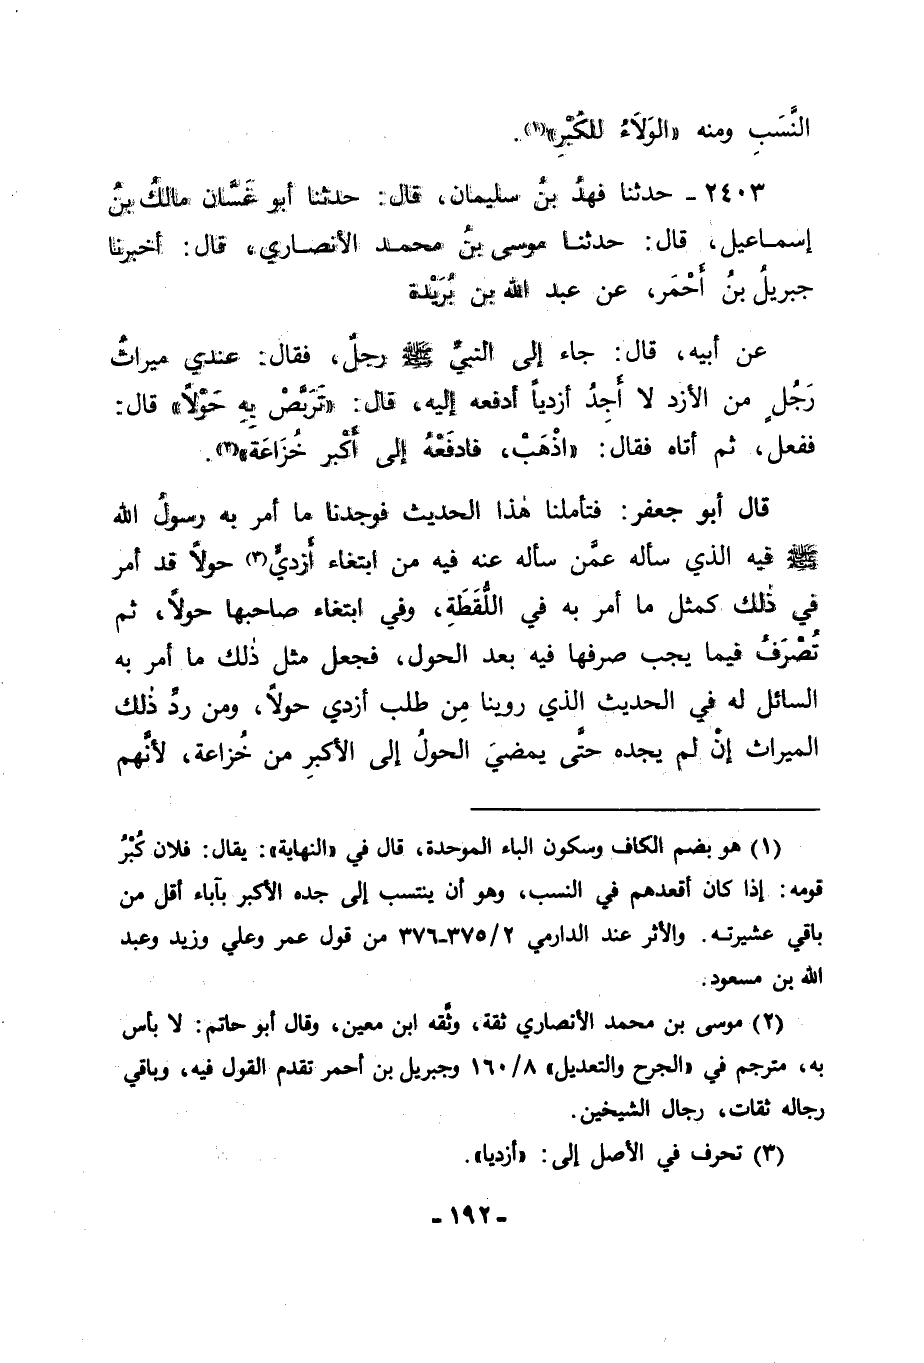 النَّسَبِ ومنه «الوَلَاءُ للكُبْرِ»(١).
٢٤٠٣ - حدثنا فهدُ بنُ سليمان، قال: حدثنا أبو غَسَّان مالكُ بنُ
إسماعيل، قال: حدثنا موسى بنُ محمد الأنصاري، قال: أخبرنا
جبريلُ بنُ أَحْمَر، عن عبد الله بن بُرَيْدة
عن أبيه، قال: جاء إلى النبيِّ ﷺ رجلٌ، فقال: عندي ميراثُ
رَجُلٍ من الأزد لا أَجِدُ أزدياً أدفعه إليه، قال: «تَرَبَّصْ بِهِ حَوْلاً» قال:
ففعل، ثم أتاه فقال: «اذْهَبْ، فادفَعْهُ إلى أَكْبر خُزَاعَة»(٢).
قال أبو جعفر: فتأملنا هٰذا الحديث فوجدنا ما أمر به رسولُ الله
ﷺ فيه الذي سأله عمَّن سأله عنه فيه من ابتغاء أَزديٍّ(٣) حولاً قد أمر
في ذٰلك كمثل ما أمر به في اللُّقَطَةِ، وفي ابتغاء صاحبها حولاً، ثم
تُصْرَفُ فيما يجب صرفها فيه بعد الحول، فجعل مثل ذٰلك ما أمر به
السائل له في الحديث الذي روينا مِن طلب أزدي حولاً، ومن ردِّ ذٰلك
الميراث إنْ لم يجده حتَّى يمضيَ الحولُ إلى الأكبرِ من خُزاعة، لأنَّهم
(١) هو بضم الكاف وسكون الباء الموحدة، قال في «النهاية»: يقال: فلان كُبْرُ
قومه: إذا كان أقعدهم في النسب، وهو أن ينتسب إلى جده الأكبر بآباء أقل من
باقي عشيرته. والأثر عند الدارمي ٣٧٥/٢-٣٧٦ من قول عمر وعلي وزيد وعبد
الله بن مسعود.
(٢) موسى بن محمد الأنصاري ثقة، وثَّقه ابن معين، وقال أبو حاتم: لا بأس
به، مترجم في «الجرح والتعديل» ١٦٠/٨ وجبريل بن أحمر تقدم القول فيه، وباقي
رجاله ثقات، رجال الشيخين.
(٣) تحرف في الأصل إلى: «أزديا».
- ١٩٢ -